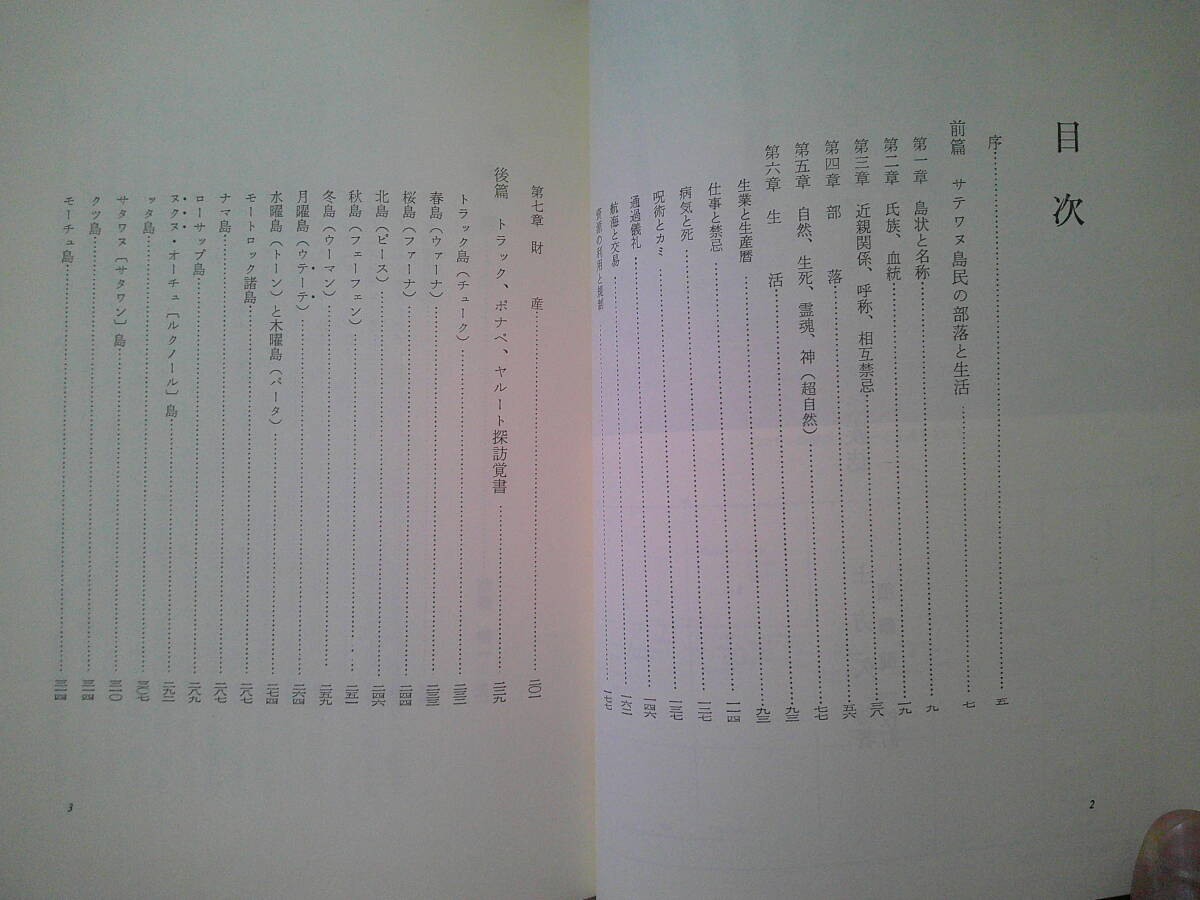 目次
序……五
前篇 サテワヌ島民の部落と生活……七
第一章 島状と名称……九
第二章 氏族、血統……一九
第三章 近親関係、呼称、相互禁忌……三八
第四章 部落……五六
第五章 自然、生死、霊魂、神(超自然)……七七
第六章 生活……九三
生業と生産暦……九三
仕事と禁忌……一一四
病気と死……一二七
呪術とカミ……一三七
通過儀礼……一四六
航海と交易……一六二
の利用と……一七七
2
第七章 財産……二〇一
後篇 トラック、ポナペ、ヤルート探訪覚書……
トラック島(チューク)……
春島(ウァーナ)……二三三
桜島(ファーナ)……二四四
北島(ピース)……二四六
秋島(フェーフェン)……二五一
冬島(ウーマン)……二五九
月曜島(ウテーテ)……二六四
水曜島(トーン)と木曜島(パータ)……二七四
モートロック諸島……二八七
ナマ島……二八七
ローサップ島……二八九
ヌクヌ・オーチュ〔ルクノール〕島……二九二
ッタ島……三〇七
サタワヌ〔サタワン〕島……三一〇
クツ島……三一四
モーチュ島……三一四
3